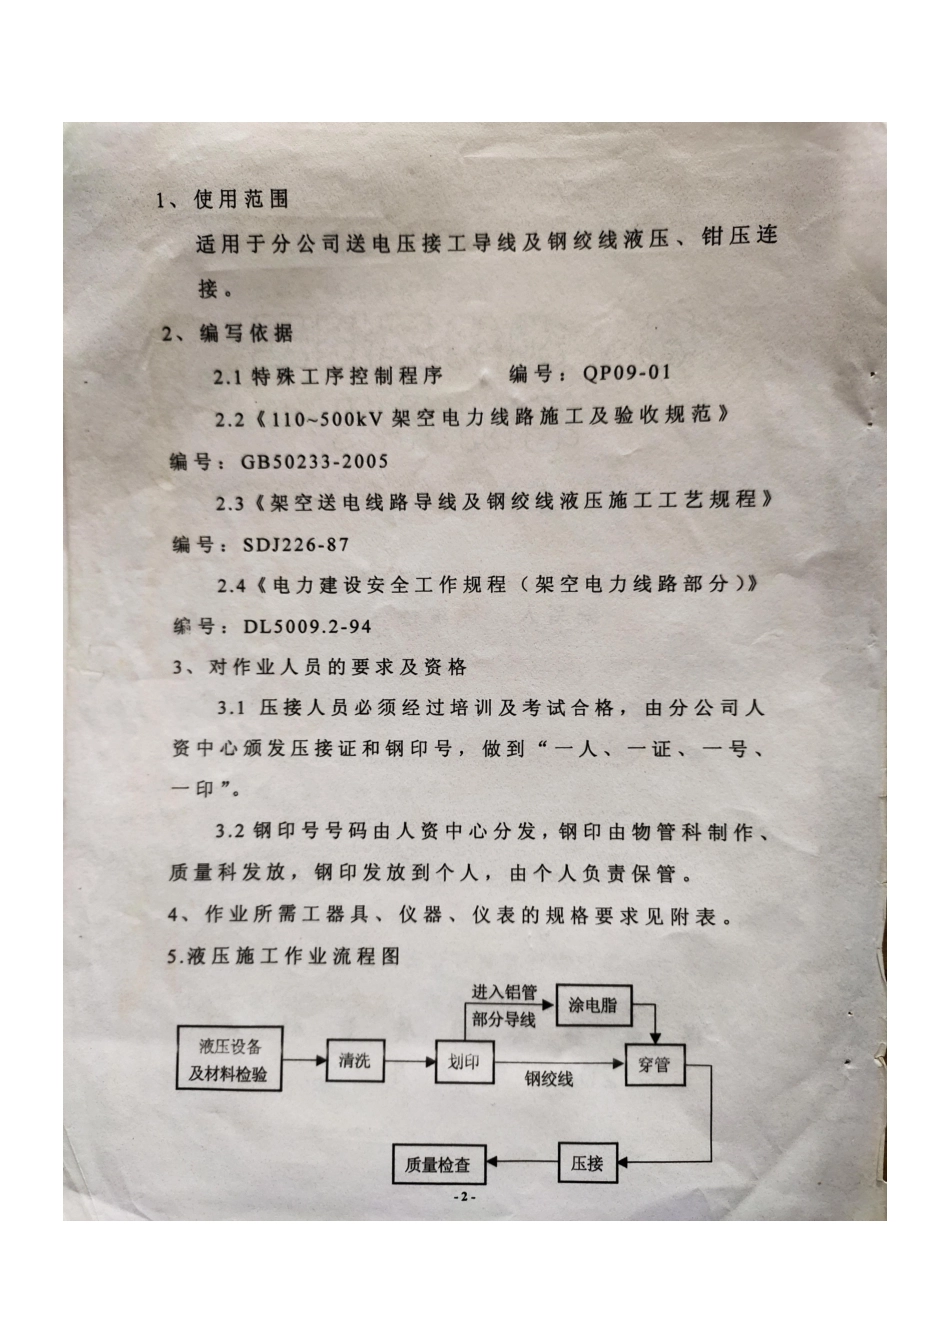 1、使用范围
适用于分公司送电压接工导线及钢绞线液压、钳压连
接。
2、编写依据
2.1 特殊工序控制程序 编号：QP09-01
2.2《110~500kV 架空电力线路施工及验收规范》
编号：GB50233-2005
2.3《架空送电线路导线及钢绞线液压施工工艺规程》
编号：SDJ226-87
2.4《电力建设安全工作规程（架空电力线路部分）》
编号：DL5009.2-94
3、对作业人员的要求及资格
3.1 压接人员必须经过培训及考试合格，由分公司人
资中心颁发压接证和钢印号，做到“一人、一证、一号、
一印”。
3.2 钢印号号码由人资中心分发，钢印由物管科制作、
质量科发放，钢印发放到个人，由个人负责保管。
4、作业所需工器具、仪器、仪表的规格要求见附表。
5.液压施工作业流程图
进入铝管
部分导线
涂电脂
液压设备
及材料检验
清洗
划印
钢绞线
穿管
质量检查
压接
- 2 -